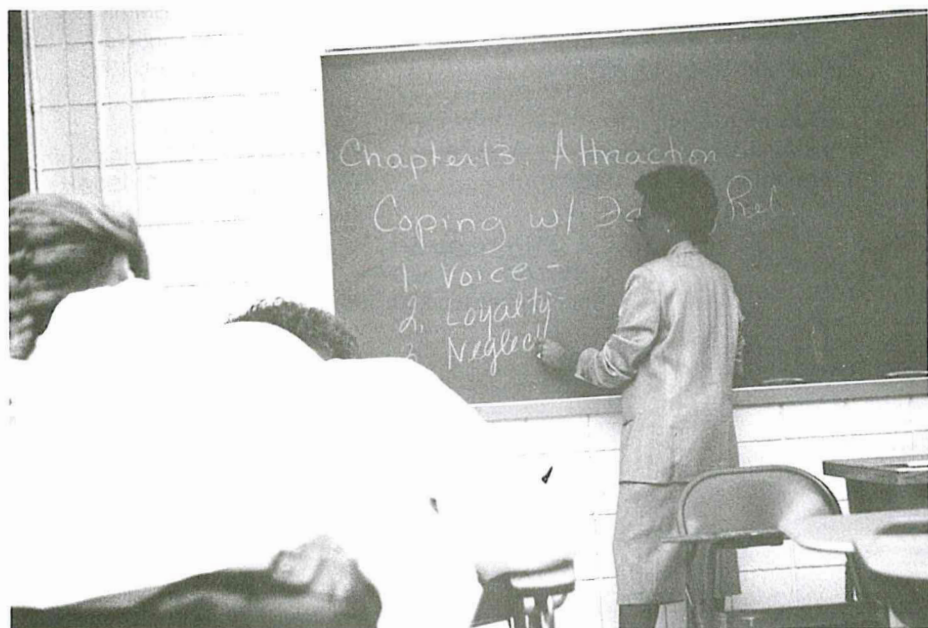 Chapter 13. Attraction -
Coping w/ Rel.
1. Voice -
2. Loyalty -
3. Neglect